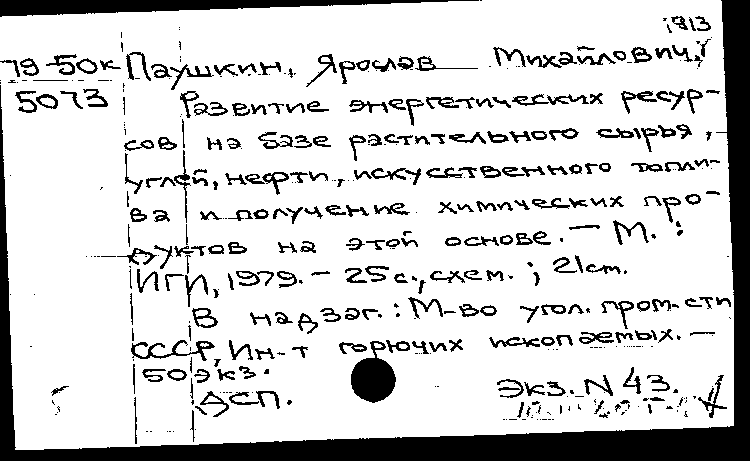 1813
79-50к Паушкин, Ярослав Михайлович.
5073 Развитие энергетических ресур-
сов на базе растительного сырья,
углей, нефти, искусственного топли-
ва и получение химических про-
дуктов на этой основе. — М. :
ИГИ, 1979. — 25 с., схем. ; 21 cm.
В надзаг. : М-во угол. пром-сти
СССР, Ин-т горючих ископаемых. —
50 экз.
ДСП. Экз. N 43.